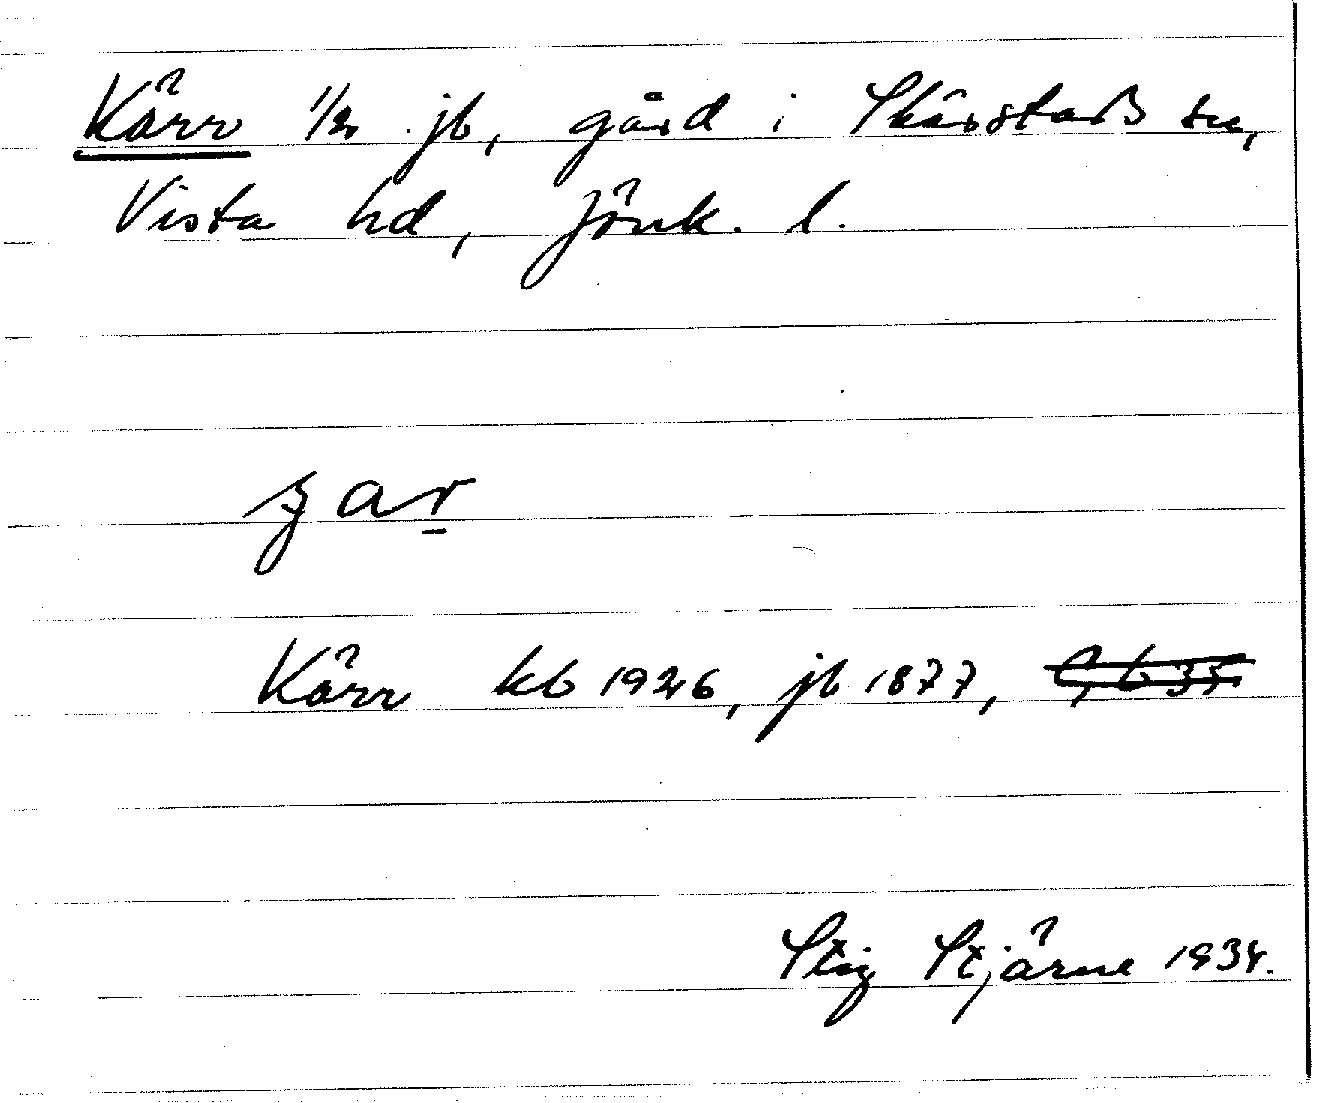 Kärr 1/2 jb, gård i Skärstads sn,
Vista hd, Jönk. l.
Kärr kb 1926, jb 1877,
Stig Stjärne 1934.